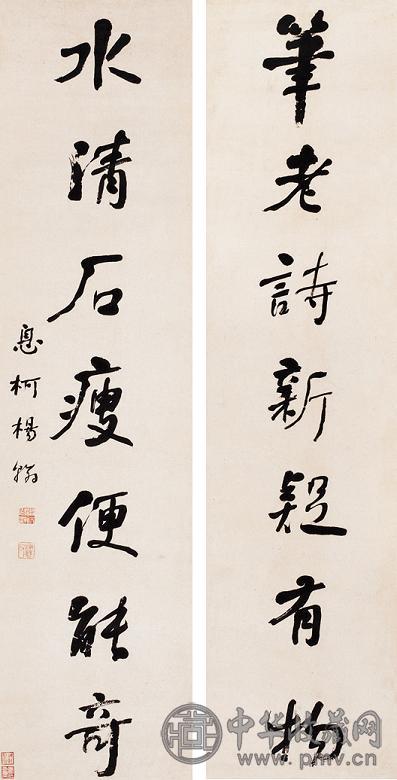 筆老詩新疑有物
水清石瘦便能奇
息柯楊翰
中华收藏网
www.pmv.cn